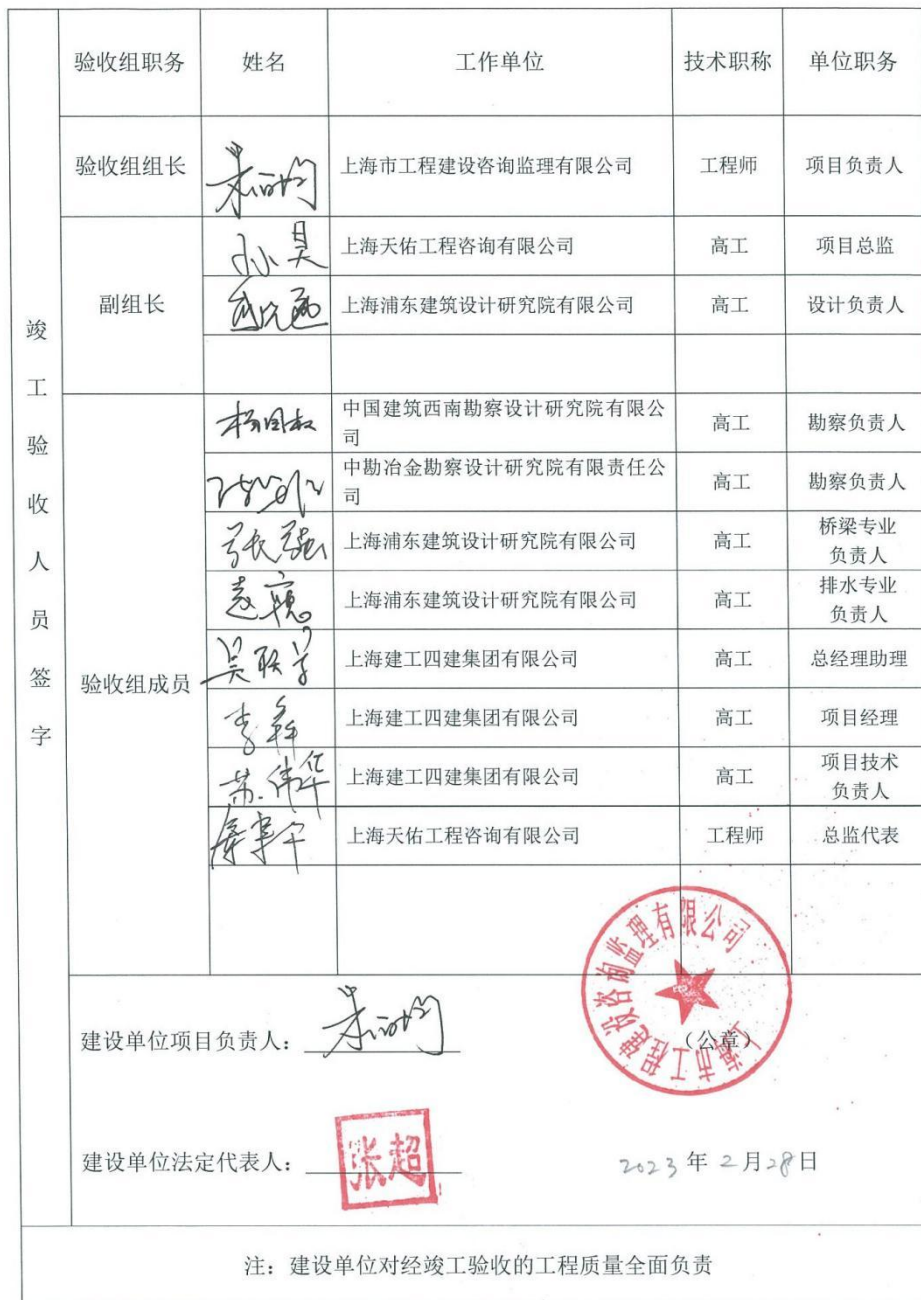 验收组职务 姓名 工作单位 技术职称 单位职务
竣工验收人员签字
验收组组长 上海市工程建设咨询监理有限公司 工程师 项目负责人
副组长
孙昊 上海天佑工程咨询有限公司 高工 项目总监
上海浦东建筑设计研究院有限公司 高工 设计负责人
验收组成员
中国建筑西南勘察设计研究院有限公
司
高工 勘察负责人
中勘冶金勘察设计研究院有限责任公
司
高工 勘察负责人
张强 上海浦东建筑设计研究院有限公司 高工 桥梁专业
负责人
上海浦东建筑设计研究院有限公司 高工 排水专业
负责人
上海建工四建集团有限公司 高工 总经理助理
上海建工四建集团有限公司 高工 项目经理
苏伟华 上海建工四建集团有限公司 高工 项目技术
负责人
上海天佑工程咨询有限公司 工程师 总监代表
建设单位项目负责人:
上海市工程建设咨询监理有限公司
(公章)
建设单位法定代表人: 张超
2023年2月28日
注:建设单位对经竣工验收的工程质量全面负责